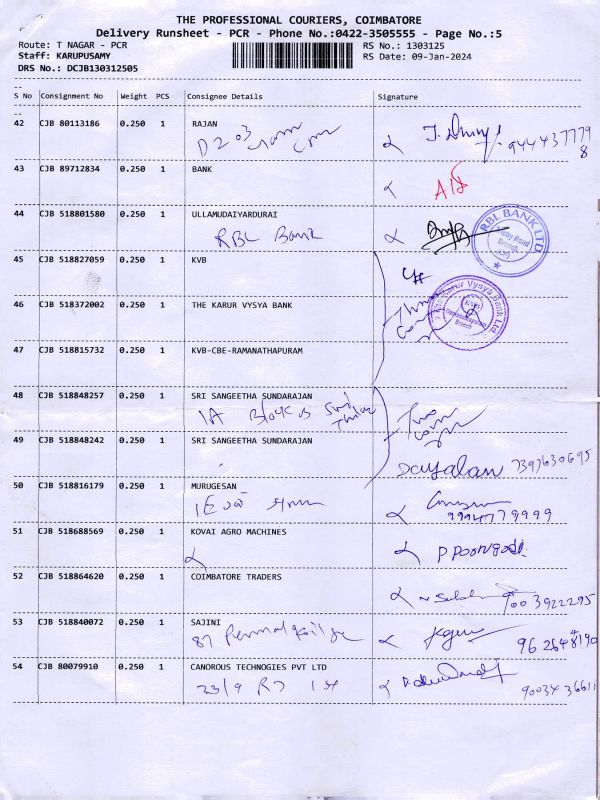 THE PROFESSIONAL COURIERS, COIMBATORE
Delivery Runsheet - PCR - Phone No.:0422-3505555 - Page No.:5
Route: T NAGAR - PCR RS No.: 1303125
Staff: KARUPUSAMY RS Date: 09-Jan-2024
DRS No.: DCJB130312505
S No Consignment No Weight PCS Consignee Details Signature
42 CJB 80113186 0.250 1 RAJAN
D203
9444377798
43 CJB 89712834 0.250 1 BANK
44 CJB 518801580 0.250 1 ULLAMUDAIYARDURAI
RBL Bank
RBL BANK LTD
Branch
45 CJB 518827059 0.250 1 KVB
46 CJB 518372002 0.250 1 THE KARUR VYSYA BANK
The Karur Vysya Bank Ltd
Ramanathapuram
Branch
47 CJB 518815732 0.250 1 KVB-CBE-RAMANATHAPURAM
48 CJB 518848257 0.250 1 SRI SANGEETHA SUNDARAJAN
1A Block B
49 CJB 518848242 0.250 1 SRI SANGEETHA SUNDARAJAN
Dayalan 7397630695
50 CJB 518816179 0.250 1 MURUGESAN
9994779999
51 CJB 518688569 0.250 1 KOVAI AGRO MACHINES
P Poongodi
52 CJB 518864620 0.250 1 COIMBATORE TRADERS
9003922295
53 CJB 518840072 0.250 1 SAJINI
87
9626448190
54 CJB 80079910 0.250 1 CANOROUS TECHNOGIES PVT LTD
23/9
9003436611